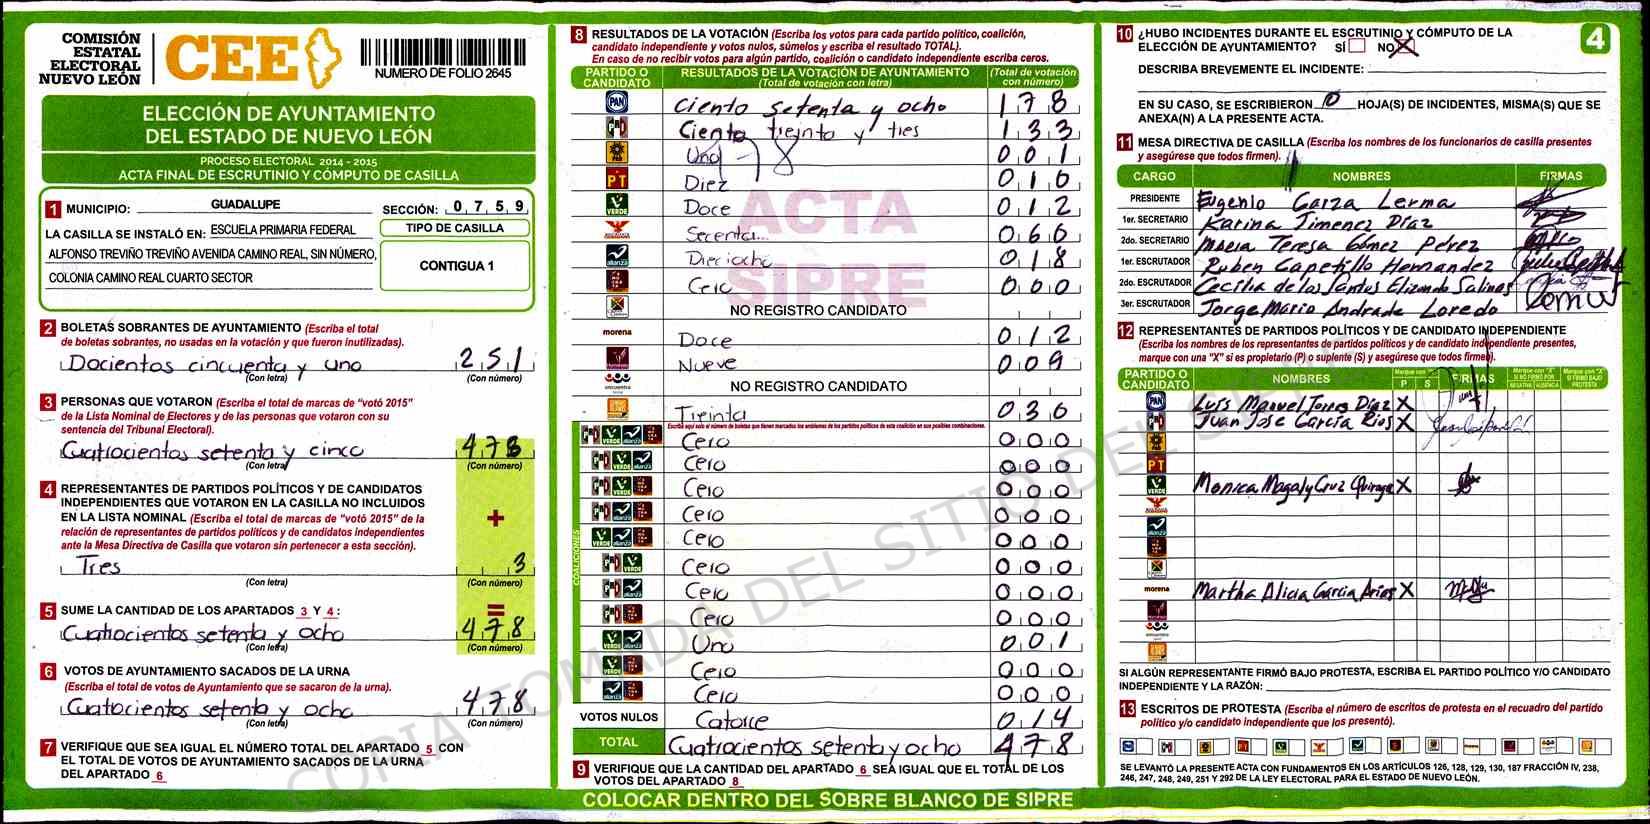 COMISIÓN
ESTATAL
ELECTORAL
NUEVO LEÓN
CEE
NUMERO DE FOLIO 2645
ELECCIÓN DE AYUNTAMIENTO
DEL ESTADO DE NUEVO LEÓN
PROCESO ELECTORAL 2014 - 2015
ACTA FINAL DE ESCRUTINIO Y CÓMPUTO DE CASILLA
1 MUNICIPIO: GUADALUPE SECCIÓN: 0 7 5 9
LA CASILLA SE INSTALÓ EN: ESCUELA PRIMARIA FEDERAL
ALFONSO TREVIÑO TREVIÑO AVENIDA CAMINO REAL, SIN NÚMERO,
COLONIA CAMINO REAL CUARTO SECTOR
TIPO DE CASILLA
CONTIGUA 1
2 BOLETAS SOBRANTES DE AYUNTAMIENTO (Escriba el total
de boletas sobrantes, no usadas en la votación y que fueron inutilizadas).
Docientos cincuenta y uno 2 5 1
(Con letra) (Con número)
3 PERSONAS QUE VOTARON (Escriba el total de marcas de "votó 2015"
de la Lista Nominal de Electores y de las personas que votaron con su
sentencia del Tribunal Electoral).
Cuatrocientos setenta y cinco
(Con letra) (Con número)
4 REPRESENTANTES DE PARTIDOS POLÍTICOS Y DE CANDIDATOS
INDEPENDIENTES QUE VOTARON EN LA CASILLA NO INCLUIDOS
EN LA LISTA NOMINAL (Escriba el total de marcas de "votó 2015" de la
relación de representantes de partidos políticos y de candidatos independientes
ante la Mesa Directiva de Casilla que votaron sin pertenecer a esta sección).
+
Tres 3
(Con letra) (Con número)
5 SUME LA CANTIDAD DE LOS APARTADOS 3 Y 4 : =
Cuatrocientos setenta y ocho 4 7 8
(Con letra) (Con número)
6 VOTOS DE AYUNTAMIENTO SACADOS DE LA URNA
(Escriba el total de votos de Ayuntamiento que se sacaron de la urna).
Cuatrocientos setenta y ocho 4 7 8
(Con letra) (Con número)
7 VERIFIQUE QUE SEA IGUAL EL NÚMERO TOTAL DEL APARTADO 5 CON
EL TOTAL DE VOTOS DE AYUNTAMIENTO SACADOS DE LA URNA
DEL APARTADO 6
8 RESULTADOS DE LA VOTACIÓN (Escriba los votos para cada partido político, coalición,
candidato independiente y votos nulos, súmelos y escriba el resultado TOTAL).
En caso de no recibir votos para algún partido, coalición o candidato independiente escriba ceros.
PARTIDO O CANDIDATO RESULTADOS DE LA VOTACIÓN DE AYUNTAMIENTO (Total de votación con letra) (Total de votación con número)
PAN Ciento setenta y ocho 1 7 8
PRI Ciento treinta y tres 1 3 3
Uno 0 0 1
PT Diez 0 1 0
VERDE Doce 0 1 2
Secenta 0 6 0
alianza Dieciocho 0 1 8
Cero 0 0 0
NO REGISTRO CANDIDATO
morena Doce 0 1 2
Nueve 0 0 9
NO REGISTRO CANDIDATO
Treinta 0 3 0
Escriba aquí solo el número de boletas que tienen marcados los emblemas de los partidos políticos de esta coalición en sus posibles combinaciones.
COALICIONES
PRI VERDE alianza Cero 0 0 0
PRI VERDE alianza Cero 0 0 0
PRI VERDE Cero 0 0 0
PRI alianza Cero 0 0 0
VERDE alianza Cero 0 0 0
PRI VERDE Cero 0 0 0
PRI alianza Cero 0 0 0
PRI Cero 0 0 0
VERDE alianza Uno 0 0 1
VERDE Cero 0 0 0
alianza Cero 0 0 0
VOTOS NULOS Catorce 0 1 4
TOTAL Cuatrocientos setenta y ocho 4 7 8
9 VERIFIQUE QUE LA CANTIDAD DEL APARTADO 6 SEA IGUAL QUE EL TOTAL DE LOS
VOTOS DEL APARTADO 8
ACTA
SIPRE
COPIA TOMADA DEL SITIO DEL
COLOCAR DENTRO DEL SOBRE BLANCO DE SIPRE
4
10 ¿HUBO INCIDENTES DURANTE EL ESCRUTINIO Y CÓMPUTO DE LA
ELECCIÓN DE AYUNTAMIENTO? SÍ NO X
DESCRIBA BREVEMENTE EL INCIDENTE:
EN SU CASO, SE ESCRIBIERON 0 HOJA(S) DE INCIDENTES, MISMA(S) QUE SE
ANEXA(N) A LA PRESENTE ACTA.
11 MESA DIRECTIVA DE CASILLA (Escriba los nombres de los funcionarios de casilla presentes
y asegúrese que todos firmen).
CARGO NOMBRES FIRMAS
PRESIDENTE Eugenio Garza Lerma
1er. SECRETARIO Karina Jimenez Díaz
2do. SECRETARIO Maria Teresa Gómez Pérez
1er. ESCRUTADOR Ruben Capetillo Hernandez
2do. ESCRUTADOR Cecilia de los Santos Elizondo Salinas
3er. ESCRUTADOR Jorge Mario Andrade Loredo
12 REPRESENTANTES DE PARTIDOS POLÍTICOS Y DE CANDIDATO INDEPENDIENTE
(Escriba los nombres de los representantes de partidos políticos y de candidato independiente presentes,
marque con una "X" si es propietario (P) o suplente (S) y asegúrese que todos firmen).
PARTIDO O CANDIDATO NOMBRES Marque con P S FIRMAS Marque con "X" SI NO FIRMÓ POR NEGATIVA AUSENCIA Marque con "X" SI FIRMÓ BAJO PROTESTA
PAN Luis Manuel Torres Diaz X
PRI Juan Jose Garcia Rios X
PT
VERDE Monica Magaly Cruz Quiroga X
morena Martha Alicia Garcia Arias X
SI ALGÚN REPRESENTANTE FIRMÓ BAJO PROTESTA, ESCRIBA EL PARTIDO POLÍTICO Y/O CANDIDATO
INDEPENDIENTE Y LA RAZÓN:
13 ESCRITOS DE PROTESTA (Escriba el número de escritos de protesta en el recuadro del partido
político y/o candidato independiente que los presentó).
SE LEVANTÓ LA PRESENTE ACTA CON FUNDAMENTOS EN LOS ARTÍCULOS 126, 128, 129, 130, 187 FRACCIÓN IV, 238,
246, 247, 248, 249, 251 Y 292 DE LA LEY ELECTORAL PARA EL ESTADO DE NUEVO LEÓN.